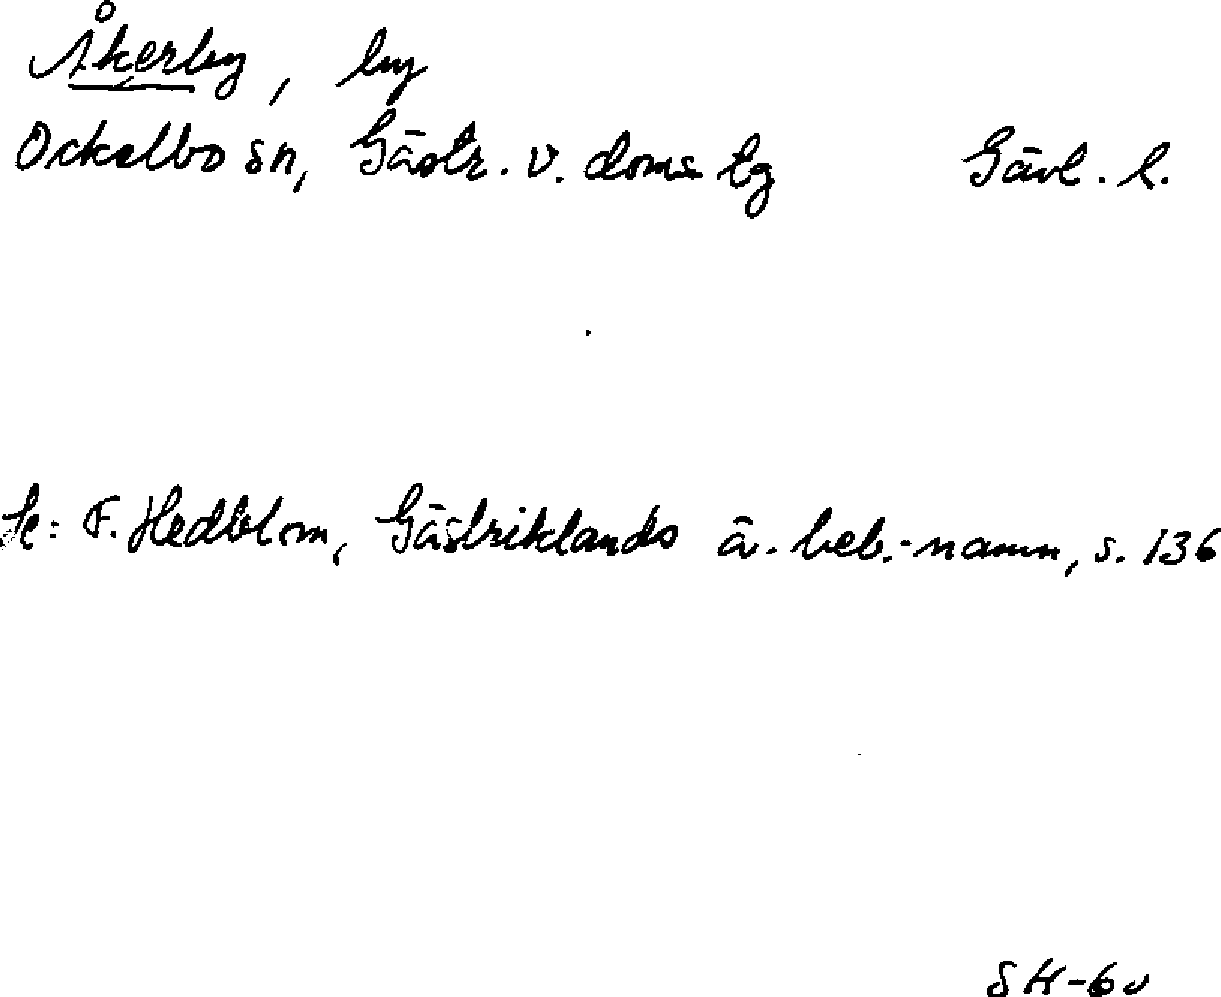 Åkerby, by
Ockelbo sn, Gästr. v. doms. tg Gävl. l.
Se: F. Hedblom, Gästriklands ä. beb.-namn, s. 136
SH-60